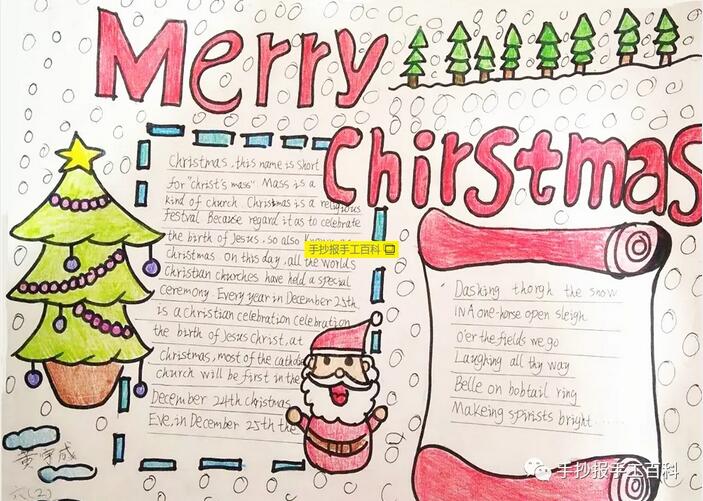 Merry
Chirstmas
Christmas, this name is short
for "christ's mass". Mass is a
kind of church. Christmas is a religious
Festival. Because regard it as to celebrate
the birth of Jesus, so also known as
Christmas. On this day, all the worlds
Christian churches have held a special
ceremony. Every year in December 25th
is a christian celebration celebration
the birth of Jesus Christ, at
Christmas, most of the catholic
church will be first in the
December 24th Christmas
Eve, in December 25th the
手抄报手工百科
Dasking thorgh the snow
IN A one-horse open sleigh
o'er the fields we go
Laughing all thy way
Belle on bobtail ring
Makeing spirists bright......
六(2)
手抄报手工百科